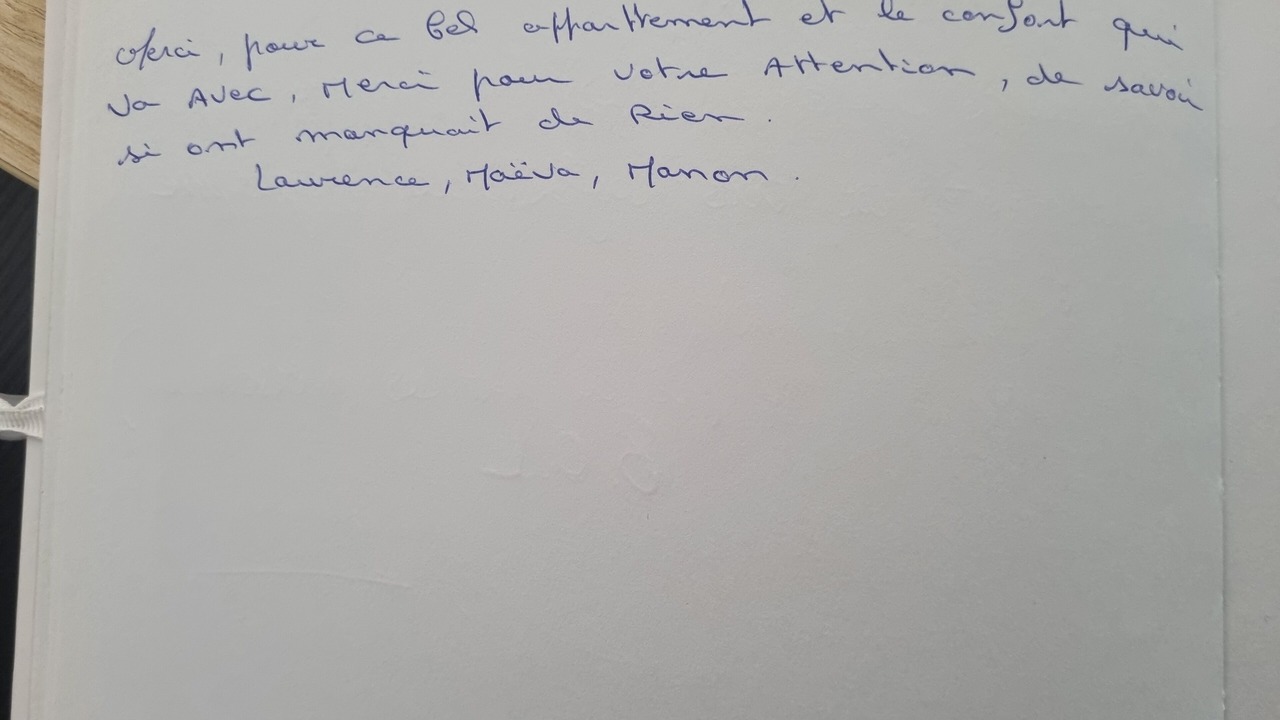 Merci, pour ce bel appartement et le confort qui
va Avec, Merci pour votre Attention, de savoir
si ont manquait de Rien.
Laurence, Maëva, Manon.